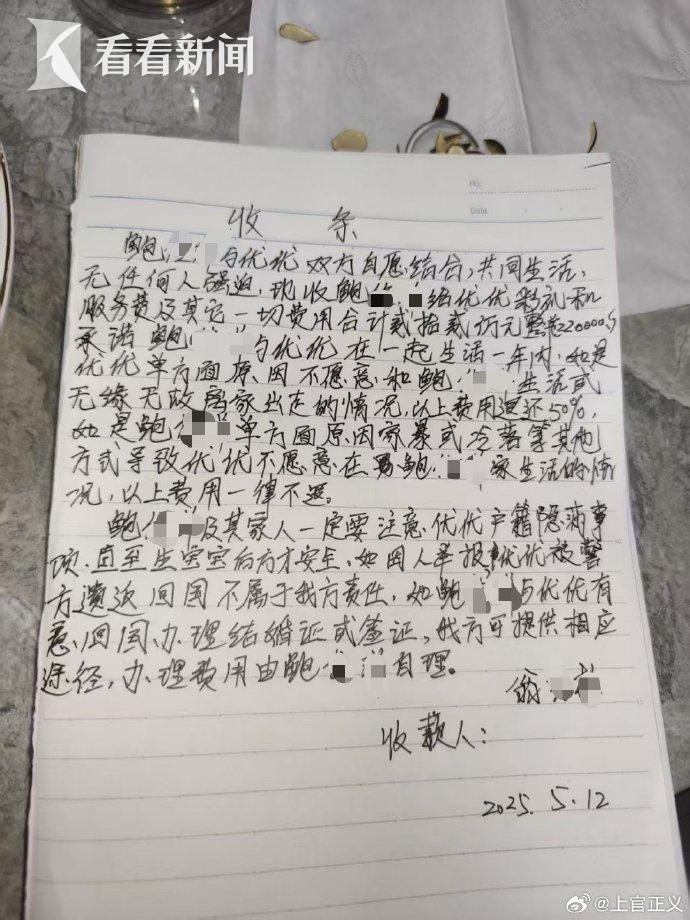 看看新闻
No:
Date
收 条
鲍 与优优双方自愿结合,共同生活,
无任何人强迫,现收鲍 给优优彩礼和
服务费及其它一切费用合计贰拾贰万元整220000
承诺鲍 与优优在一起生活一年内,如是
优优单方面原因不愿意和鲍 生活或
无缘无故离家出走的情况,以上费用退还50%,
如是鲍 单方面原因家暴或冷落等其他
方式导致优优不愿意在男鲍 家生活的情
况,以上费用一律不退。
鲍 及其家人一定要注意,优优户籍隐瞒事
项,直至生宝宝后方才安全,如因人举报优优被警
方遣返回国不属于我方责任,如鲍 与优优有
意回国办理结婚证或签证,我方可提供相应
途径,办理费用由鲍 自理。
翁
收款人:
2025.5.12
@上官正义